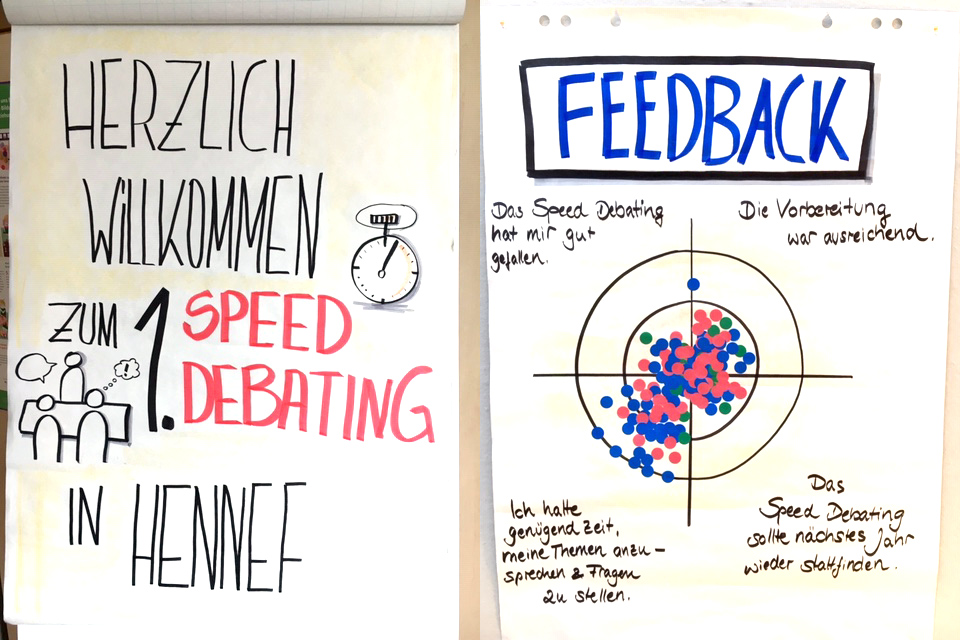 HERZLICH
WILLKOMMEN
ZUM 1. SPEED
DEBATING
IN HENNEF
FEEDBACK
Das Speed Debating
hat mir gut
gefallen.
Die Vorbereitung
war ausreichend.
Ich hatte
genügend Zeit,
meine Themen anzu-
sprechen & Fragen
zu stellen.
Das
Speed Debating
sollte nächstes Jahr
wieder stattfinden.